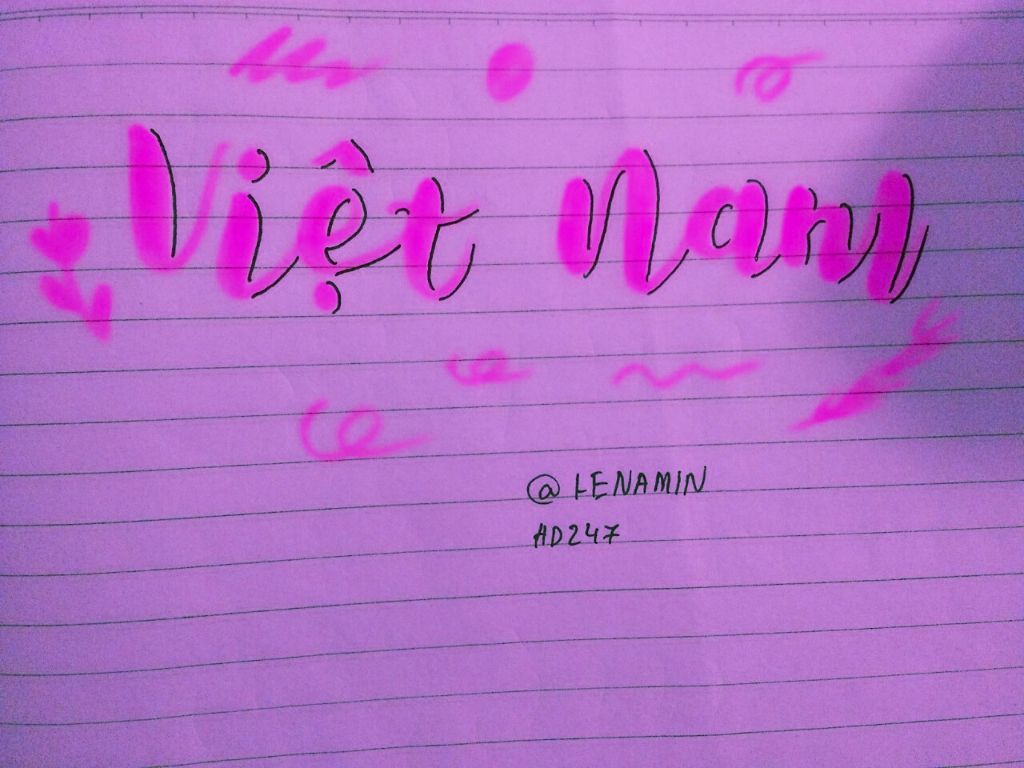 Việt Nam
@LENAMIN
AD247